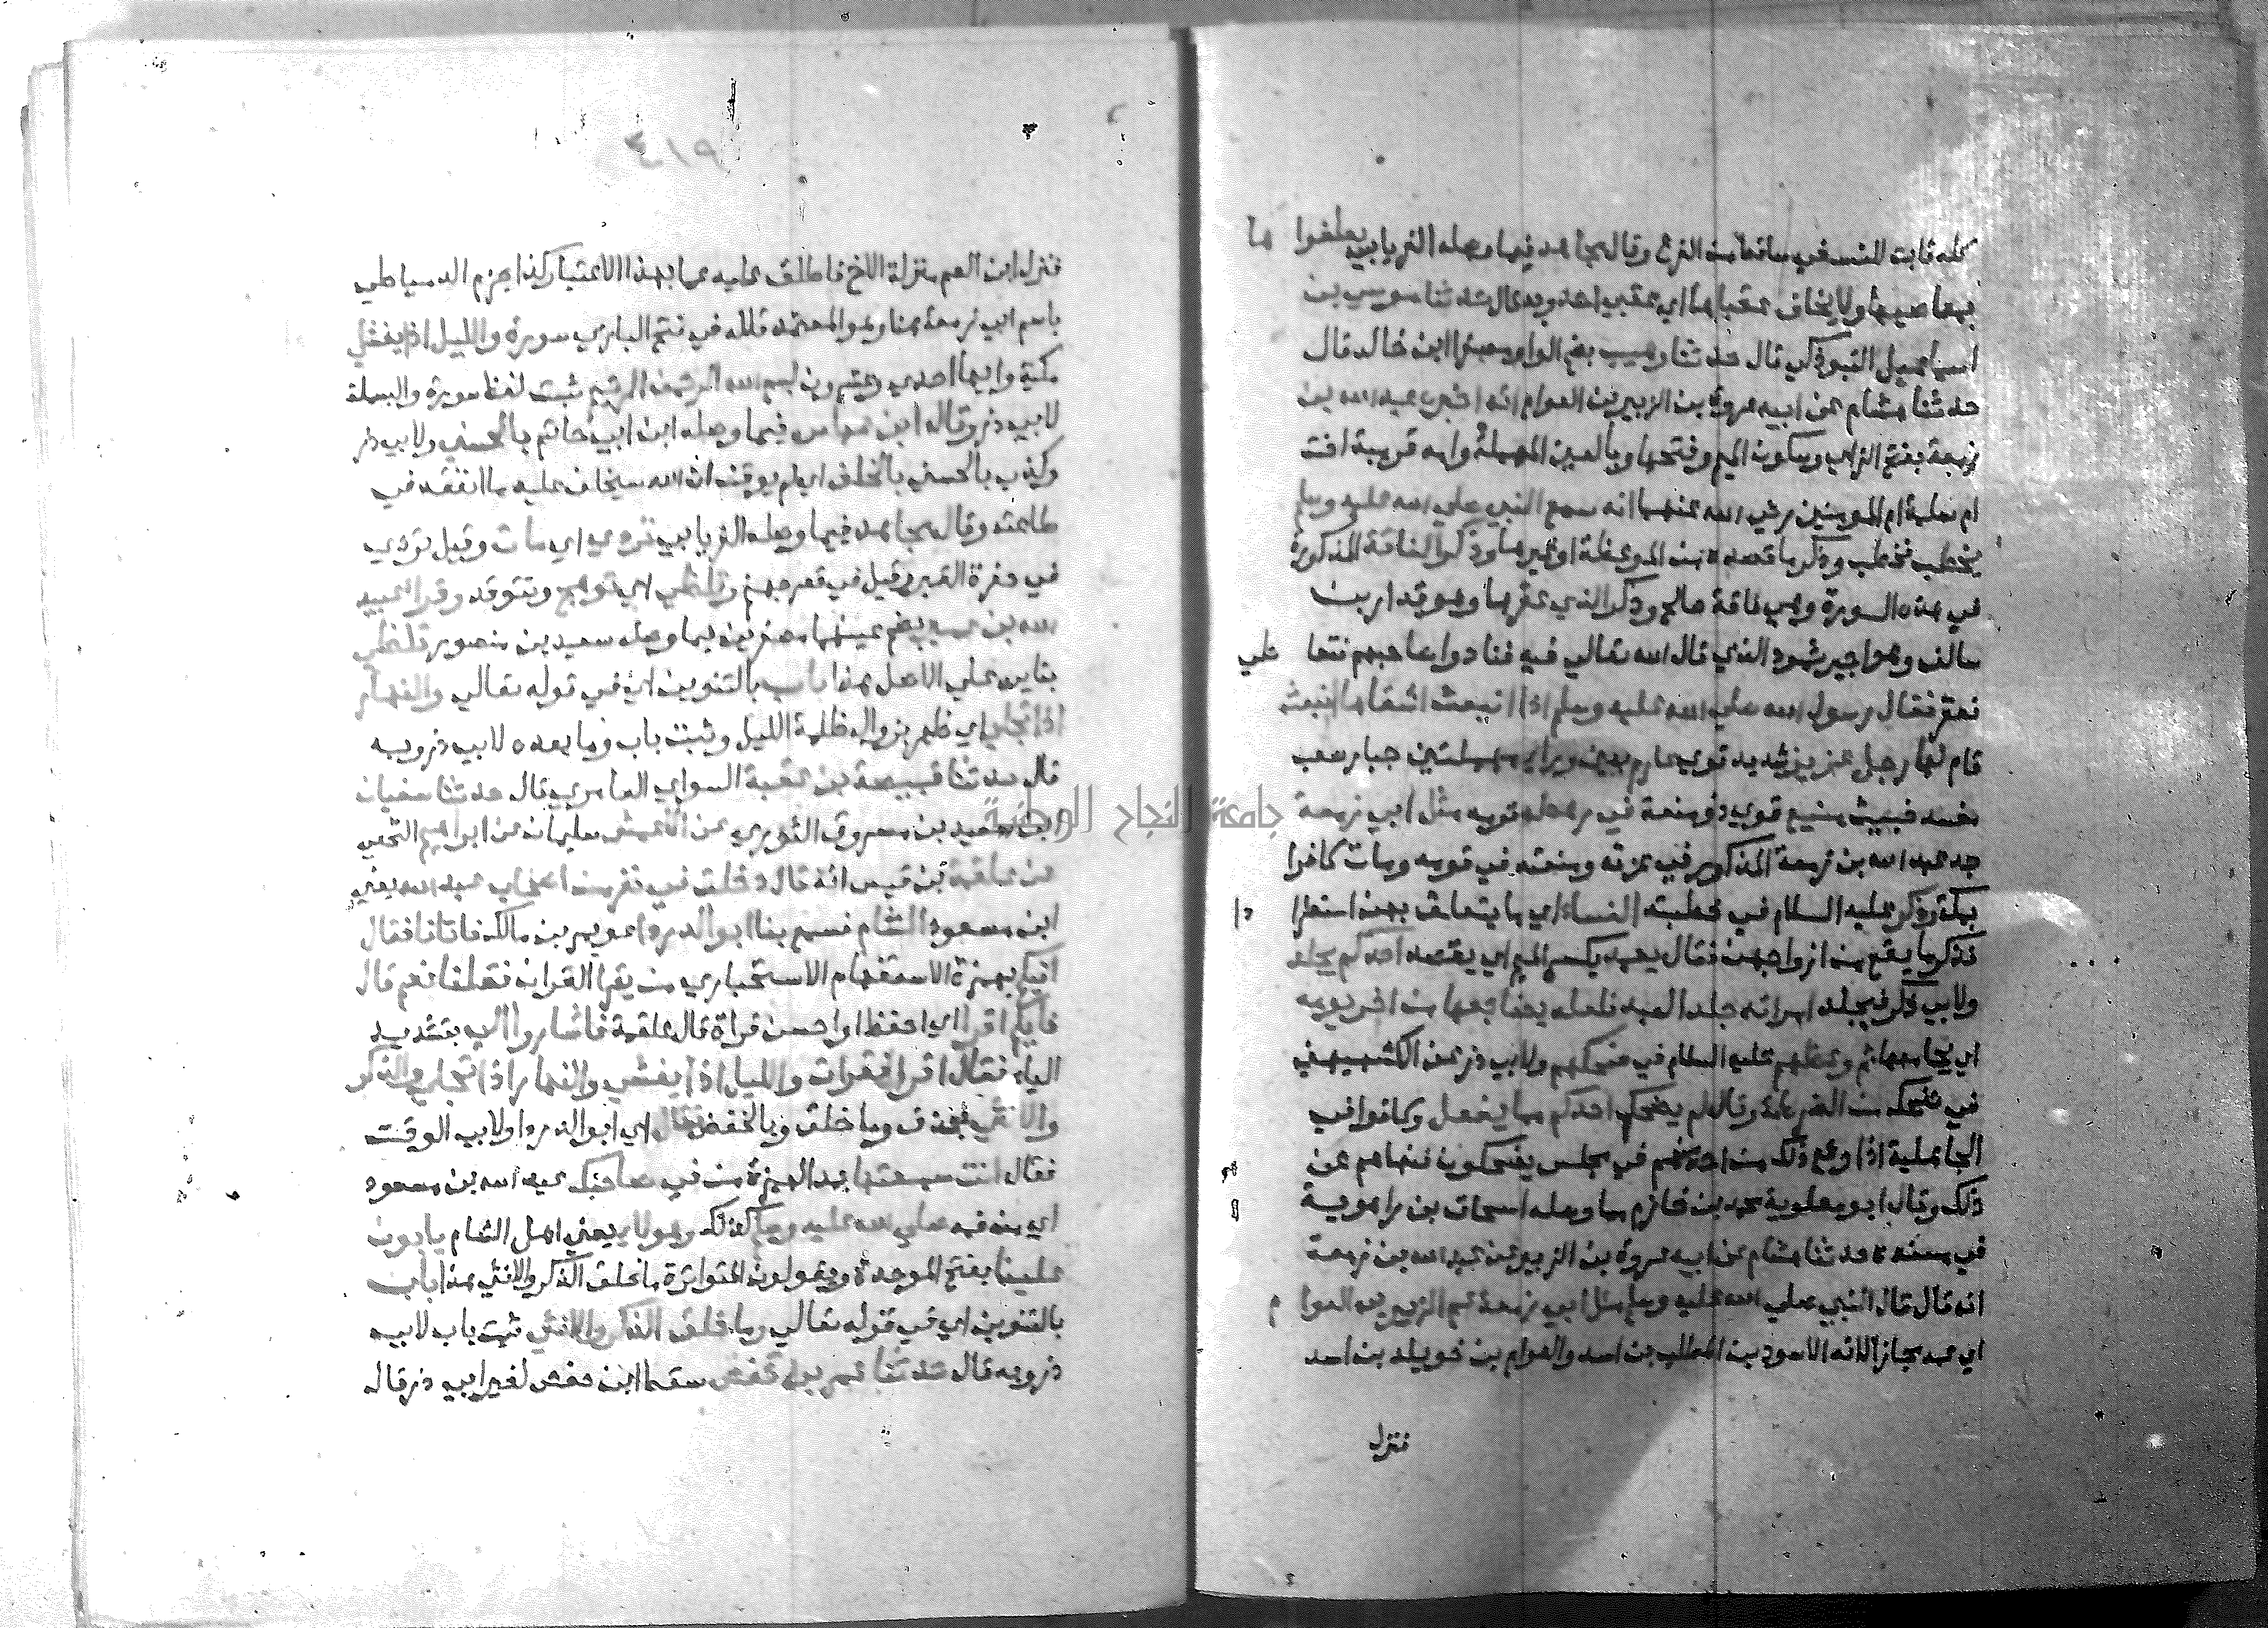 كله ثابت للنسفي ساقط من الفرع وقال مجاهد فيما وصله الفريابي بطغواها
بمعاصيها ولا يخاف عقباها اي عقبي احد وبه قال حدثنا موسي بن
اسماعيل التبوذكي قال حدثنا وهيب بضم الواو مصغرا ابن خالد قال
حدثنا هشام عن ابيه عروة بن الزبير بن العوام انه اخبره عبد الله بن
زمعة بفتح الزاي وسكون الميم وفتحها وبالعين المهملة وامه قريبة اخت
ام سلمة ام المومنين رضي الله عنهما انه سمع النبي صلي الله عليه وسلم
يخطب فخطب وذكر ما قصده من الموعظة او غيرها وذكر الناقة المذكورة
في هذه السورة وهي ناقة صالح وذكر الذي عقرها وهو قدار بن
سالف وهو احير ثمود الذي قال الله تعالي فيه فنادوا صاحبهم فتعاطي
فعقر فقال رسول الله صلي الله عليه وسلم اذا انبعث اشقاها انبعث
قام لها رجل عزيز شديد قوي عارم بعين وراء مهملتين جبار صعب
مفسد خبيث منيع قوي ذو منعة في رهطه قومه مثل ابي زمعة
جد عبد الله بن زمعة المذكور في عزته ومنعته في قومه ومات كافرا
بمكة وذكر عليه السلام في خطبته النساء اي ما يتعلق بهن استطرادا
فذكر ما يقع من ازواجهن فقال يعمد بكسر الميم اي يقصد احدكم يجلد
ولابي ذر فيجلد امراته جلد العبد فلعله يضاجعها من اخر يومه
اي يجامعها ثم وعظهم عليه السلام في ضحكهم ولابي ذر عن الكشميهني
في ضحك من الضرطة وقال لم يضحك احدكم مما يفعل وكانوا في
الجاهلية اذا وقع ذلك من احد منهم في مجلس يضحكون فنهاهم عن
ذلك وقال ابو معاوية محمد بن خازم مما وصله اسحاق بن راهوية
في مسنده حدثنا هشام عن ابيه عروة بن الزبير عن عبد الله بن زمعة
انه قال قال النبي صلي الله عليه وسلم مثل ابي زمعة عم الزبير بن العوام
اي عمه مجازا لانه الاسود بن المطلب بن اسد والعوام بن خويلد بن اسد
فنزل
٤١٩
فنزل ابن العم منزلة الاخ فاطلق عليه عما بهذا الاعتبار كذا جزم الدمياطي
باسم ابي زمعة هنا وهو المعتمد قاله في فتح الباري سورة والليل اذا يغشي
مكية وايها احدي وعشرون بسم الله الرحمن الرحيم ثبت لفظ سورة والبسملة
لابي ذر وقال ابن عباس فيما وصله ابن ابي حاتم بالحسني ولابي ذر
وكذب بالحسني بالخلف اي لم يوقن ان الله سيخلف عليه ما انفقه في
طاعته وقال مجاهد فيما وصله الفريابي تردي اي مات وقيل تردي
في حفرة القبر وقيل في قعر جهنم وتلظي اي توهج وتتوقد وقرا عبيد
الله بن عمير بضم عينهما مصغرين فيما وصله سعيد بن منصور تتلظي
بتاين علي الاصل هذا باب بالتنوين اي في قوله تعالي والنهار
اذا تجلي اي ظهر بزوال ظلمة الليل وثبت باب وما بعده لابي ذر وبه
قال حدثنا قبيصة بن عقبة السواي العامري قال حدثنا سفيان
ابن سعيد بن مسروق الثوري عن الاعمش سليمان عن ابراهيم النخعي
عن علقمة بن قيس انه قال دخلت في نفر من اصحاب عبد الله يعني
ابن مسعود الشام فسمع بنا ابو الدرداء عويمر بن مالك فاتانا فقال
افيكم بهمزة الاستفهام الاستخباري من يقرا القران فقلنا نعم قال
فايكم اقرا اي احفظ او احسن قراة قال علقمة فاشاروا الي بتشديد
الياء فقال اقرا فقرات والليل اذا يغشي والنهار اذا تجلي والذكر
والانثي بحذف وما خلق وبالخفض فقال اي ابو الدرداء ولابي الوقت
فقال انت سمعتها بمد الهمزة من في صاحبك عبد الله بن مسعود
اي من فيه صلي الله عليه وسلم كذلك وهولاء يعني اهل الشام يابون
علينا بفتح الموحدة ويقولون المتواترة ما خلق الذكر والانثي هذا باب
بالتنوين اي في قوله تعالي وما خلق الذكر والانثي ثبت باب لابي
ذر وبه قال حدثنا عمر بن حفص سقط ابن حفص لغير ابي ذر قال
جامعة النجاح الوطنية